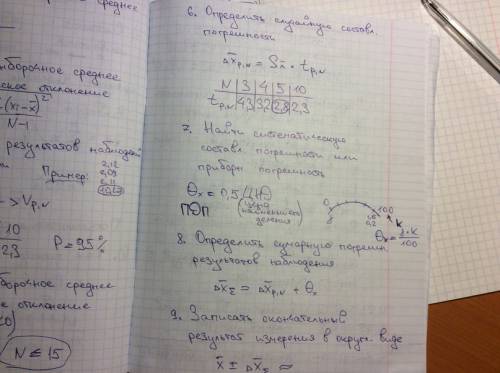 среднее
выборочное среднее
ское отклонение
(xᵢ-x̄)²
N-1
результатов наблюдений
Пример:
2,12
2,09
2,11
> V_{P,N}
10
2,3
P = 95%
борочное среднее
ое отклонение
N ≤ 15
6. Определить случайную составл.
погрешности
Δx̄_{P,N} = S_{x̄} · t_{P,N}
N | 3 | 4 | 5 | 10
t_{P,N} | 4,3 | 3,2 | 2,8 | 2,3
7. Найти систематическую
составл. погрешности или
приборн. погрешность
Θ_x = 0,5 ЦНД
(цена наименьшего деления)
ПЭП
0 100
γ K
Θ_x = γ·K/100
8. Определить сумарную погрешн.
результатов наблюдения
Δx̄_Σ = Δx̄_{P,N} + Θ_x
9. Записать окончательный
результат измерения в округл. виде
x̄ ± Δx̄_Σ =